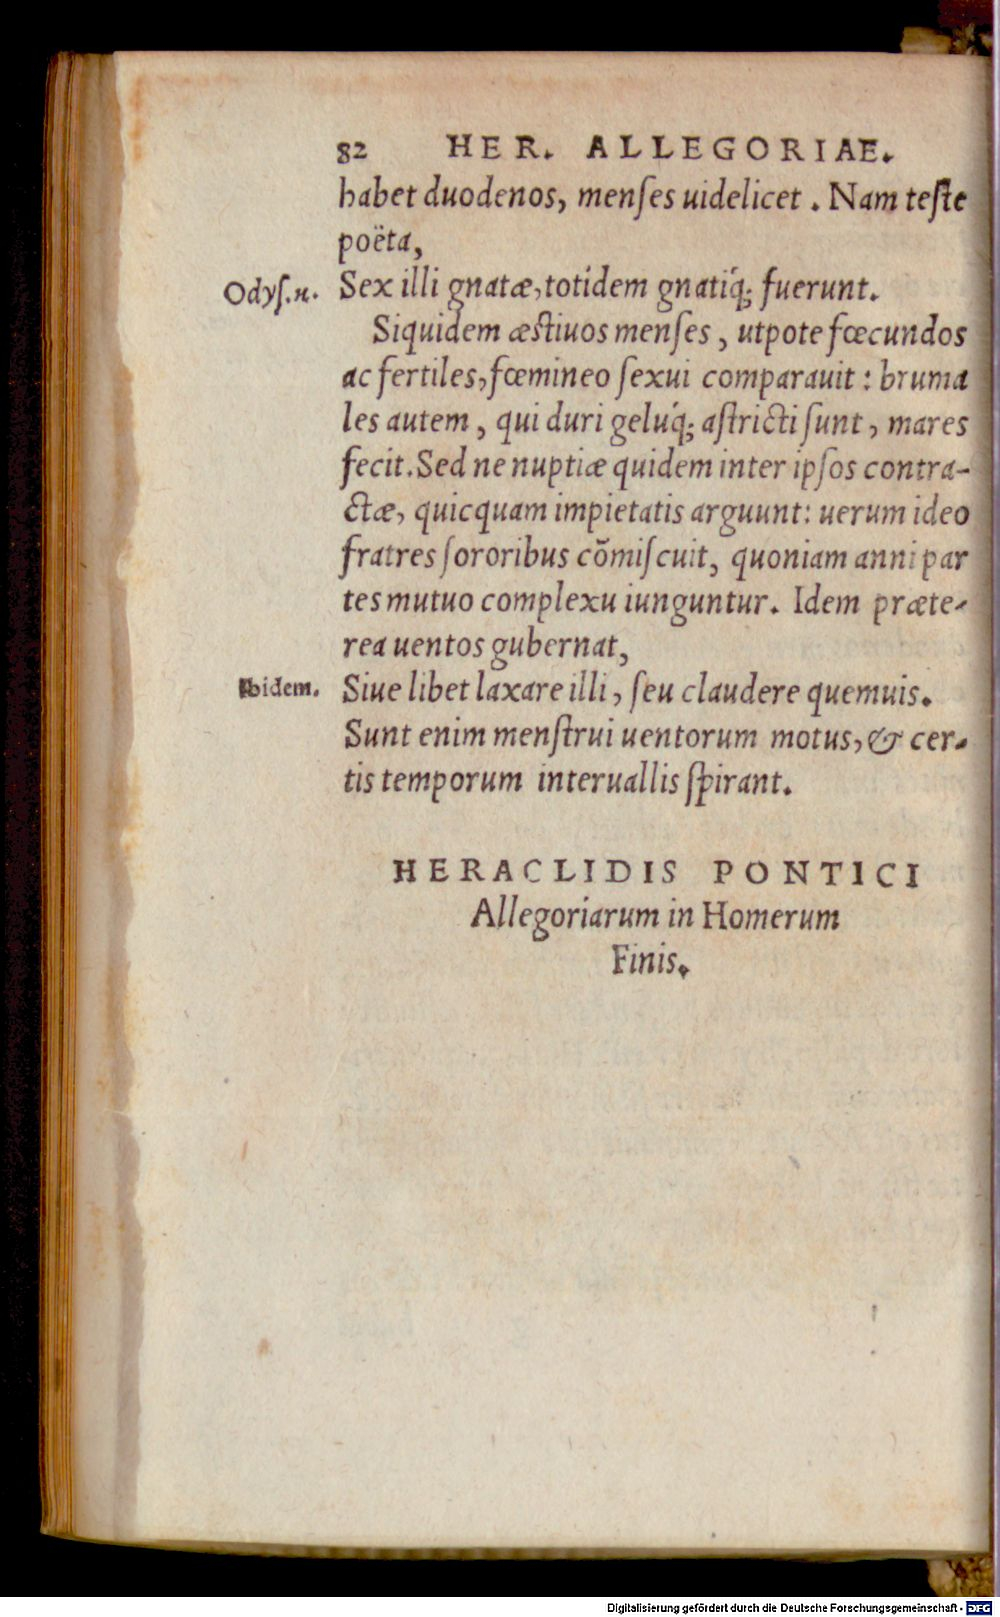 82 HER. ALLEGORIAE.
habet duodenos, menſes uidelicet. Nam teſte
poëta,
Odyſ.κ. Sex illi gnatæ, totidem gnatiq́; fuerunt.
Siquidem æſtiuos menſes, utpote fœcundos
ac fertiles, fœmineo ſexui comparauit: bruma
les autem, qui duri geluq́; aſtricti ſunt, mares
fecit. Sed ne nuptiæ quidem inter ipſos contra-
ctæ, quicquam impietatis arguunt: uerum ideo
fratres ſororibus cōmiſcuit, quoniam anni par
tes mutuo complexu iunguntur. Idem præte-
rea uentos gubernat,
Ibidem. Siue libet laxare illi, ſeu claudere quemuis.
Sunt enim menſtrui uentorum motus, & cer-
tis temporum interuallis ſpirant.
HERACLIDIS PONTICI
Allegoriarum in Homerum
Finis.
Digitalisierung gefördert durch die Deutsche Forschungsgemeinschaft - DFG